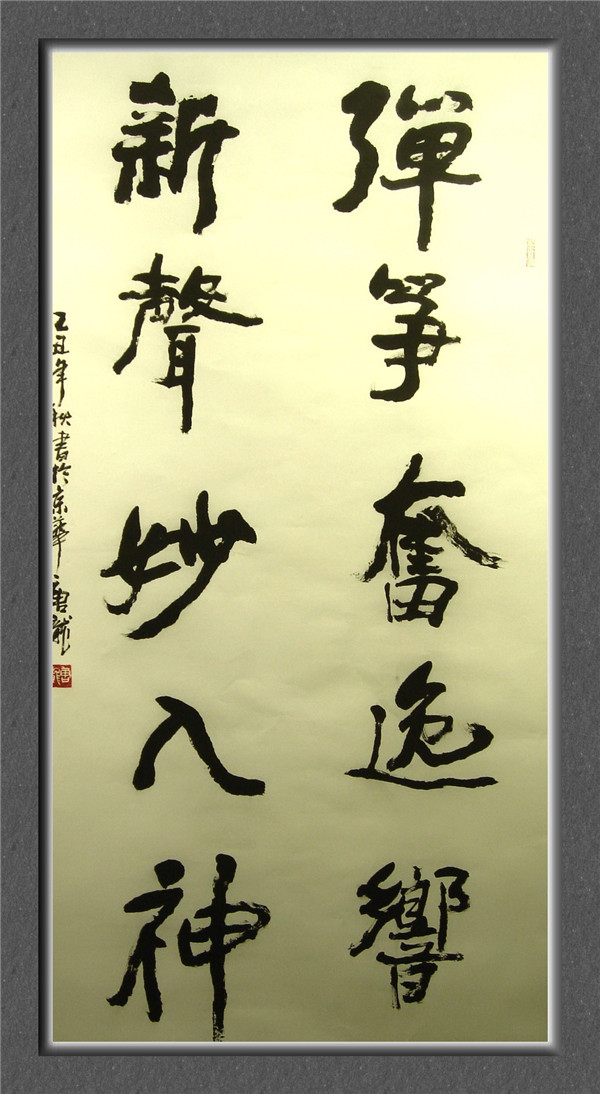 彈箏奮逸響
新聲妙入神
乙丑年秋書於京華